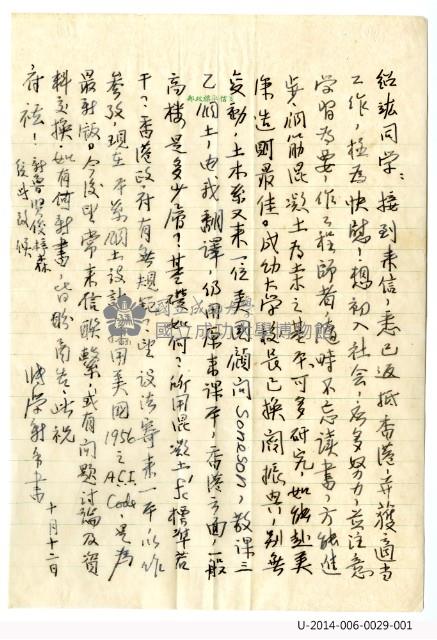 紹誌同学：接到来信，悉已返抵香港并获適当
工作，極為快慰！想初入社会，应多努力，並注意
学習為要，作工程师者，随時不忘读書，方能進
步，鋼筋混凝土為来之基本，可多研究，如能赴美
深造则最佳。成功大学校長已换閻振興，别無
变動，土木系又来一位美國顧问Soneson，教课三
乙鋼土，由我翻譯，仍用原来课本，香港方面，一般
高楼是多少層？基礎如何？所用混凝土f'c標準若
干？香港政府有無規范？望設法寄来一本，以作
参攷，現在本系鋼土設計採用美國1956之A.C.I. Code，是為
最新版。今後望常来信联繫，或有問題讨論及資
料交换，如有何新書，皆盼商告。此祝
府祺！
十月十二日
國立成功大學
國立成功大學博物館
U-2014-006-0029-001